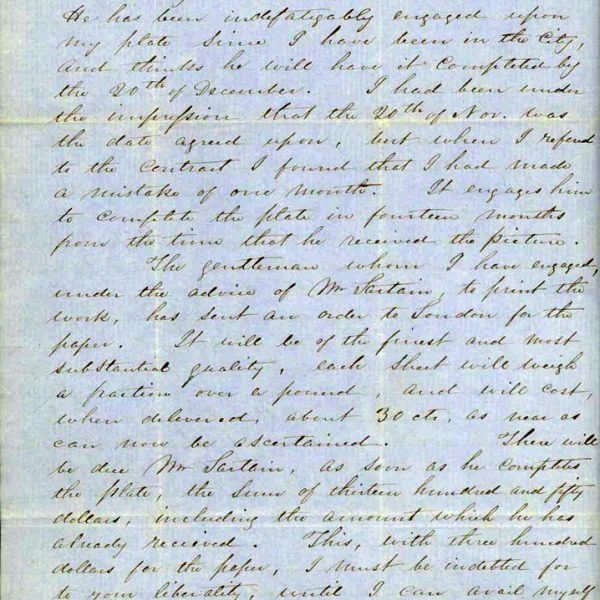 He has been indefatigably engaged upon
my plate since I have been in the City,
and thinks he will have it completed by
the 20th of December. I had been under
the impression that the 20th of Nov. was
the date agreed upon, but when I refered
to the contract I found that I had made
a mistake of one month. It engages him
to complete the plate in fourteen months
from the time that he received the picture.
The gentleman whom I have engaged,
under the advice of Mr Sartain, to print the
work, has sent an order to London for the
paper. It will be of the finest and most
substantial quality, each sheet will weigh
a fraction over a pound, and will cost,
when delivered, about 30 cts, as near as
can now be ascertained. There will
be due Mr Sartain, as soon as he completes
the plate, the sum of thirteen hundred and fifty
dollars, including the amount which he has
already received. This, with three hundred
dollars for the paper, I must be indebted for
to your liberality, until I can avail myself